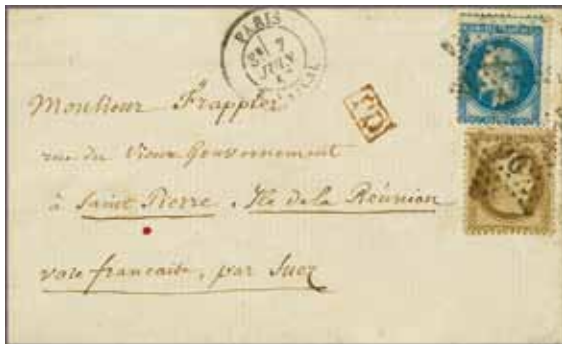 PARIS
7
PD
Monsieur Frappier
rue du Vieux Gouvernement
à Saint Pierre Ile de la Réunion
voie française, par Suez